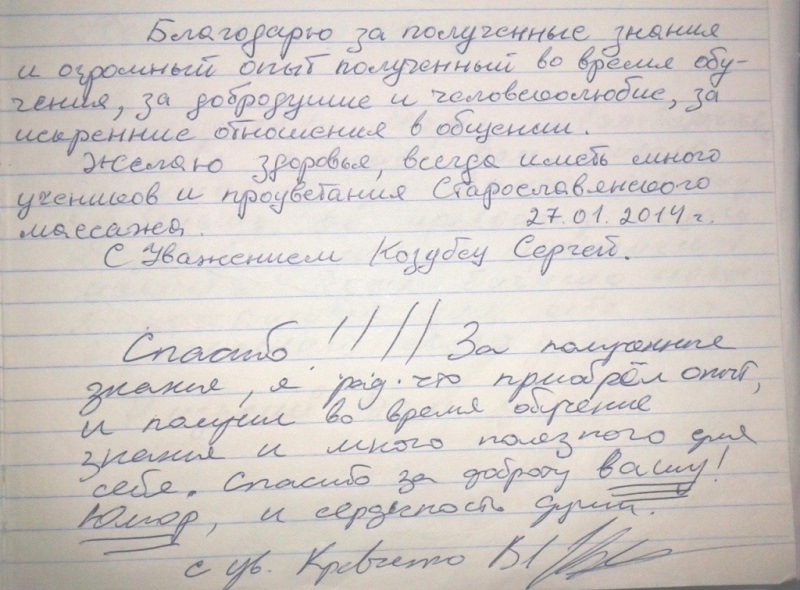 Благодарю за полученные знания
и огромный опыт полученный во время обу-
чения, за добродушие и человеколюбие, за
искренние отношения в общении.
Желаю здоровья, всегда иметь много
учеников и процветания Старославянского
массажа. 27.01.2014 г.
С Уважением Козубец Сергей.
Спасибо !!!!! За полученные
знания, я рад. что приобрёл опыт,
и получил во время обучение
знания и много полезного для
себя. Спасибо за доброту вашу!
Юмор, и сердечность души.
с ув. Кравченко В